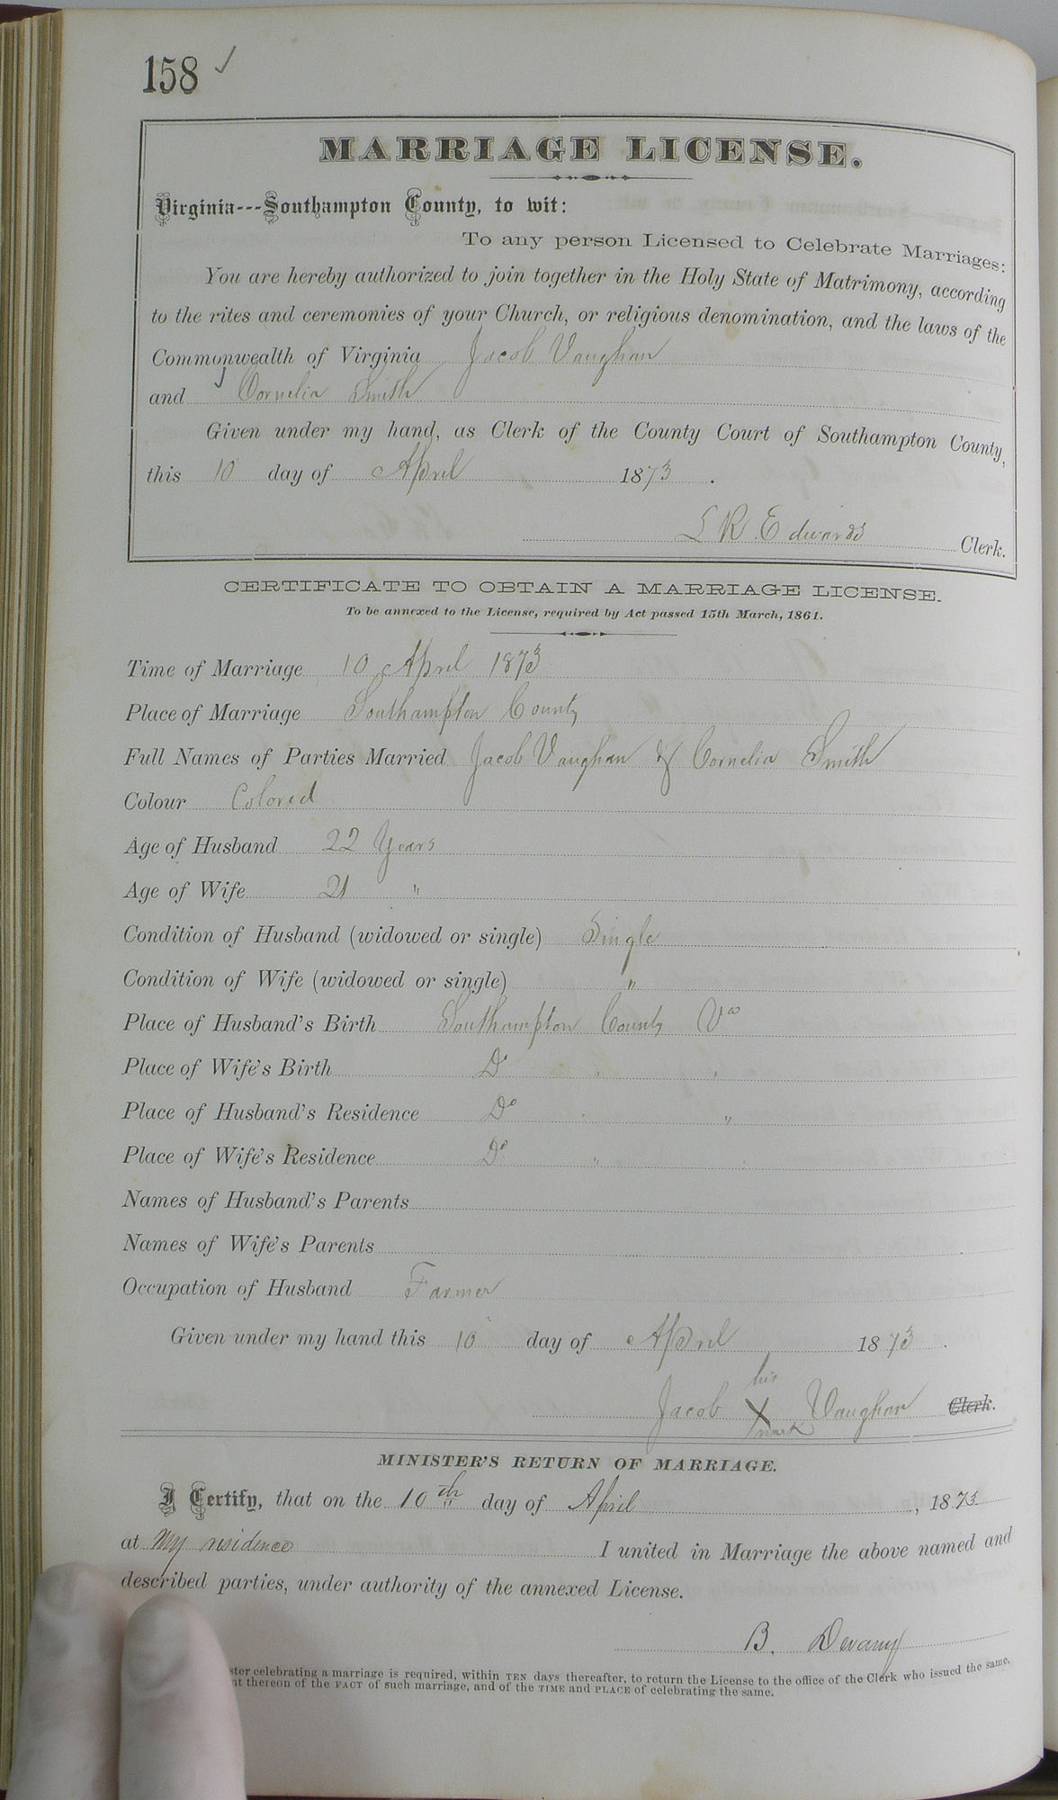 158 ✓
MARRIAGE LICENSE.
Virginia---Southampton County, to wit:
To any person Licensed to Celebrate Marriages:
You are hereby authorized to join together in the Holy State of Matrimony, according
to the rites and ceremonies of your Church, or religious denomination, and the laws of the
Commonwealth of Virginia Jacob Vaughan
and Cornelia Smith
Given under my hand, as Clerk of the County Court of Southampton County,
this 10 day of April 1873.
L R Edwards Clerk.
CERTIFICATE TO OBTAIN A MARRIAGE LICENSE.
To be annexed to the License, required by Act passed 15th March, 1861.
Time of Marriage 10 April 1873
Place of Marriage Southampton County
Full Names of Parties Married Jacob Vaughan & Cornelia Smith
Colour Colored
Age of Husband 22 Years
Age of Wife 21 "
Condition of Husband (widowed or single) Single
Condition of Wife (widowed or single) "
Place of Husband's Birth Southampton County Va
Place of Wife's Birth Do " "
Place of Husband's Residence Do " "
Place of Wife's Residence Do " "
Names of Husband's Parents
Names of Wife's Parents
Occupation of Husband Farmer
Given under my hand this 10 day of April 1873.
his
Jacob X Vaughan Clerk.
mark
MINISTER'S RETURN OF MARRIAGE.
I Certify, that on the 10th day of April, 1873
at My residence I united in Marriage the above named and
described parties, under authority of the annexed License.
B. Devany
celebrating a marriage is required, within TEN days thereafter, to return the License to the office of the Clerk who issued the same,
thereon of the FACT of such marriage, and of the TIME and PLACE of celebrating the same.